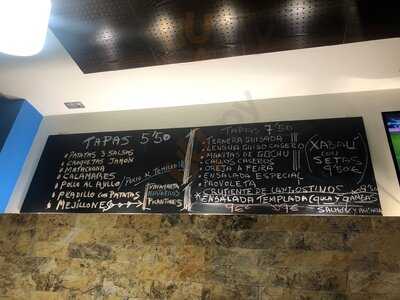 TAPAS 5'50
PATATAS 3 SALSAS
CROQUETAS JAMON
MATACHANA
CALAMARES
POLLO AL AJILLO / POLLO AL TOMILLO
PEADILLO CON PATATAS
MEJILLONES
VINAGRETA
MARINEROS
PICANTONES
TAPAS 7'50
TERNERA GUISADA
LENGUA GUISO CASERO
MANITAS DE GOCHU
CALLOS CASEROS
OREJA A FEIRA
ENSALADA ESPECIAL
PROVOLETA
CRUJIENTE DE LANGOSTINOS
ENSALADA TEMPLADA (GULA Y GAMBAS
SALMON Y
(XABALÍ
CON
SETAS
9'50€)